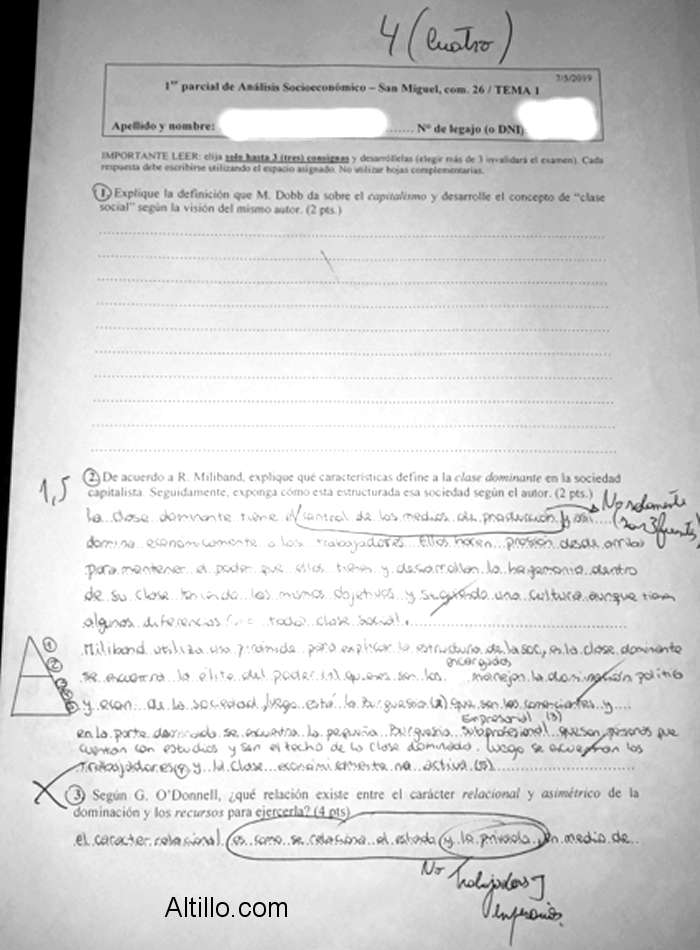 4 (Cuatro)
7/5/2019
1er parcial de Análisis Socioeconómico – San Miguel, com. 26 / TEMA 1
Apellido y nombre: ...... Nº de legajo (o DNI)
IMPORTANTE LEER: elija solo hasta 3 (tres) consignas y desarróllelas (elegir más de 3 invalidará el examen). Cada
respuesta debe escribirse utilizando el espacio asignado. No utilizar hojas complementarias.
1. Explique la definición que M. Dobb da sobre el capitalismo y desarrolle el concepto de “clase
social” según la visión del mismo autor. (2 pts.)
1,5
2. De acuerdo a R. Miliband, explique qué características define a la clase dominante en la sociedad
capitalista. Seguidamente, exponga cómo esta estructurada esa sociedad según el autor. (2 pts.)
No solamente
(son 3 fuentes)
la clase dominante tiene el control de los medios de producción y así
domina economicamente a los trabajadores. Ellos hacen presión desde arriba
para mantener el poder que ellos tienen y desarrollan la hegemonia dentro
de su clase teniendo los mismos objetivos y siguiendo una cultura aunque tienen
algunas diferencias como toda clase social.
Miliband utiliza una piramide para explicar la estructura de la soc, en la clase dominante
se encuentra la élite del poder (1) quienes son los encargados manejan la dominación politica
y econ. de la sociedad, luego está la Burguesia (2) que son los comerciantes y
en la parte dominada se encuentra la pequeña Burguesia Empresarial subprofesional (3) que son personas que
cuentan con estudios y son el techo de la clase dominada. Luego se encuentran los
Trabajadores (4) y la clase economicamente no activa (5).
1
2
3. Según G. O'Donnell, ¿qué relación existe entre el carácter relacional y asimétrico de la
dominación y los recursos para ejercerla? (4 pts)
el caracter relacional es como se relaciona el estado y la privada, en medio de
No
Altillo.com